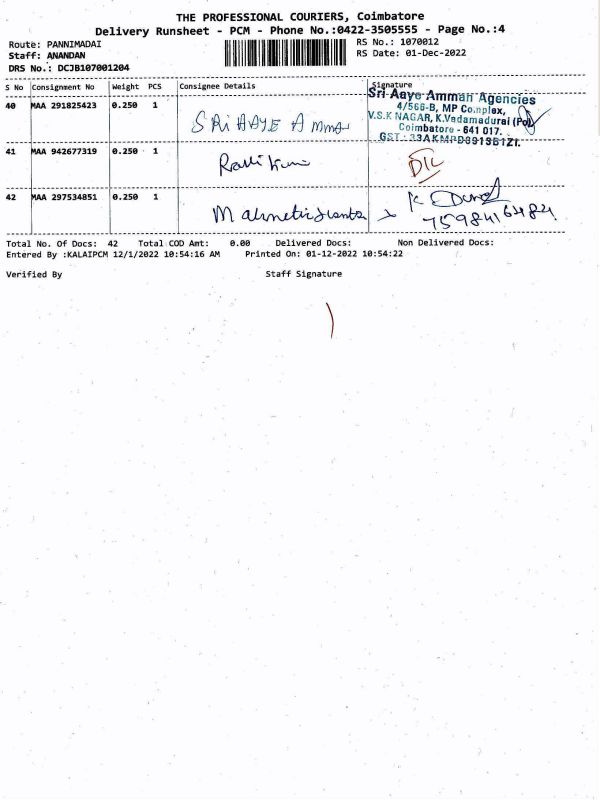 THE PROFESSIONAL COURIERS, Coimbatore
Delivery Runsheet - PCM - Phone No.:0422-3505555 - Page No.:4
Route: PANNIMADAI
RS No.: 1070012
Staff: ANANDAN
RS Date: 01-Dec-2022
DRS No.: DCJB107001204
S No Consignment No Weight PCS Consignee Details Signature
40 MAA 291825423 0.250 1 SRi AAYE AMMA
Sri Aaye Amman Agencies
4/566-B, MP Complex,
V.S.K NAGAR, K.Vadamadurai (Po)
Coimbatore - 641 017.
41 MAA 942677319 0.250 1
42 MAA 297534851 0.250 1
Total No. Of Docs: 42 Total COD Amt: 0.00 Delivered Docs: Non Delivered Docs:
Entered By :KALAIPCM 12/1/2022 10:54:16 AM Printed On: 01-12-2022 10:54:22
Verified By Staff Signature